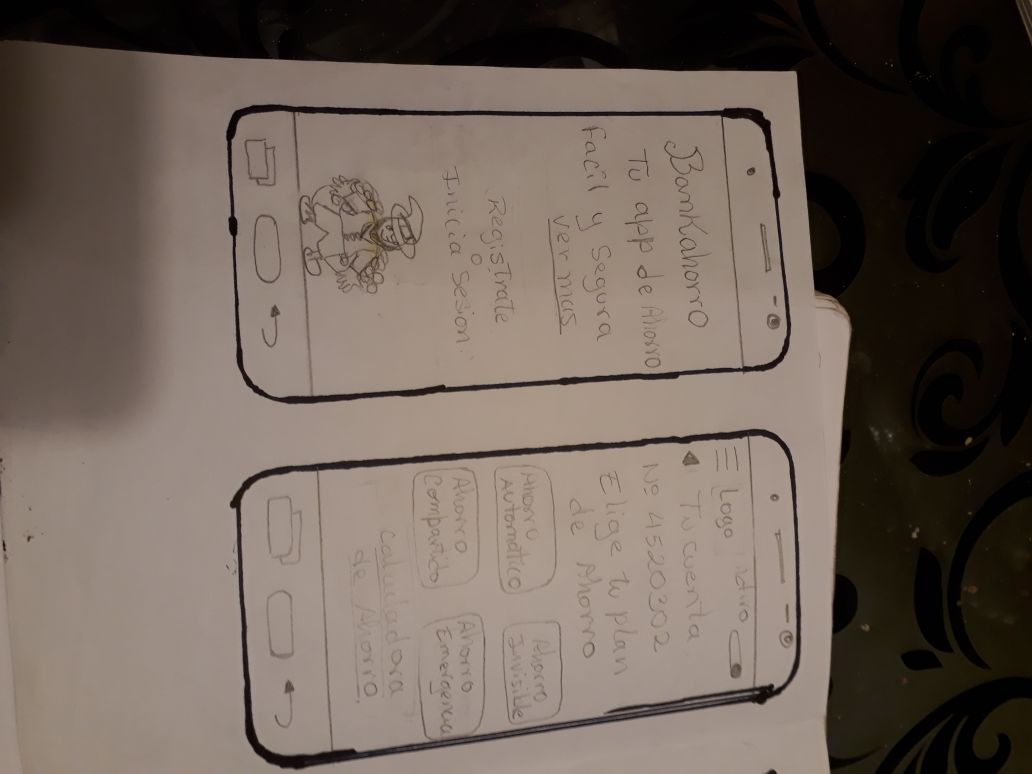 Bankahorro
Tu app de Ahorro
facil y segura
ver mas
Registrate
o
Inicia sesion
Logo
Tu cuenta
Nº 4520302
Elige tu plan
de Ahorro
Ahorro
Automático
Ahorro
Invisible
Ahorro
Compartido
Ahorro
Emergencia
Calculadora
de Ahorro.